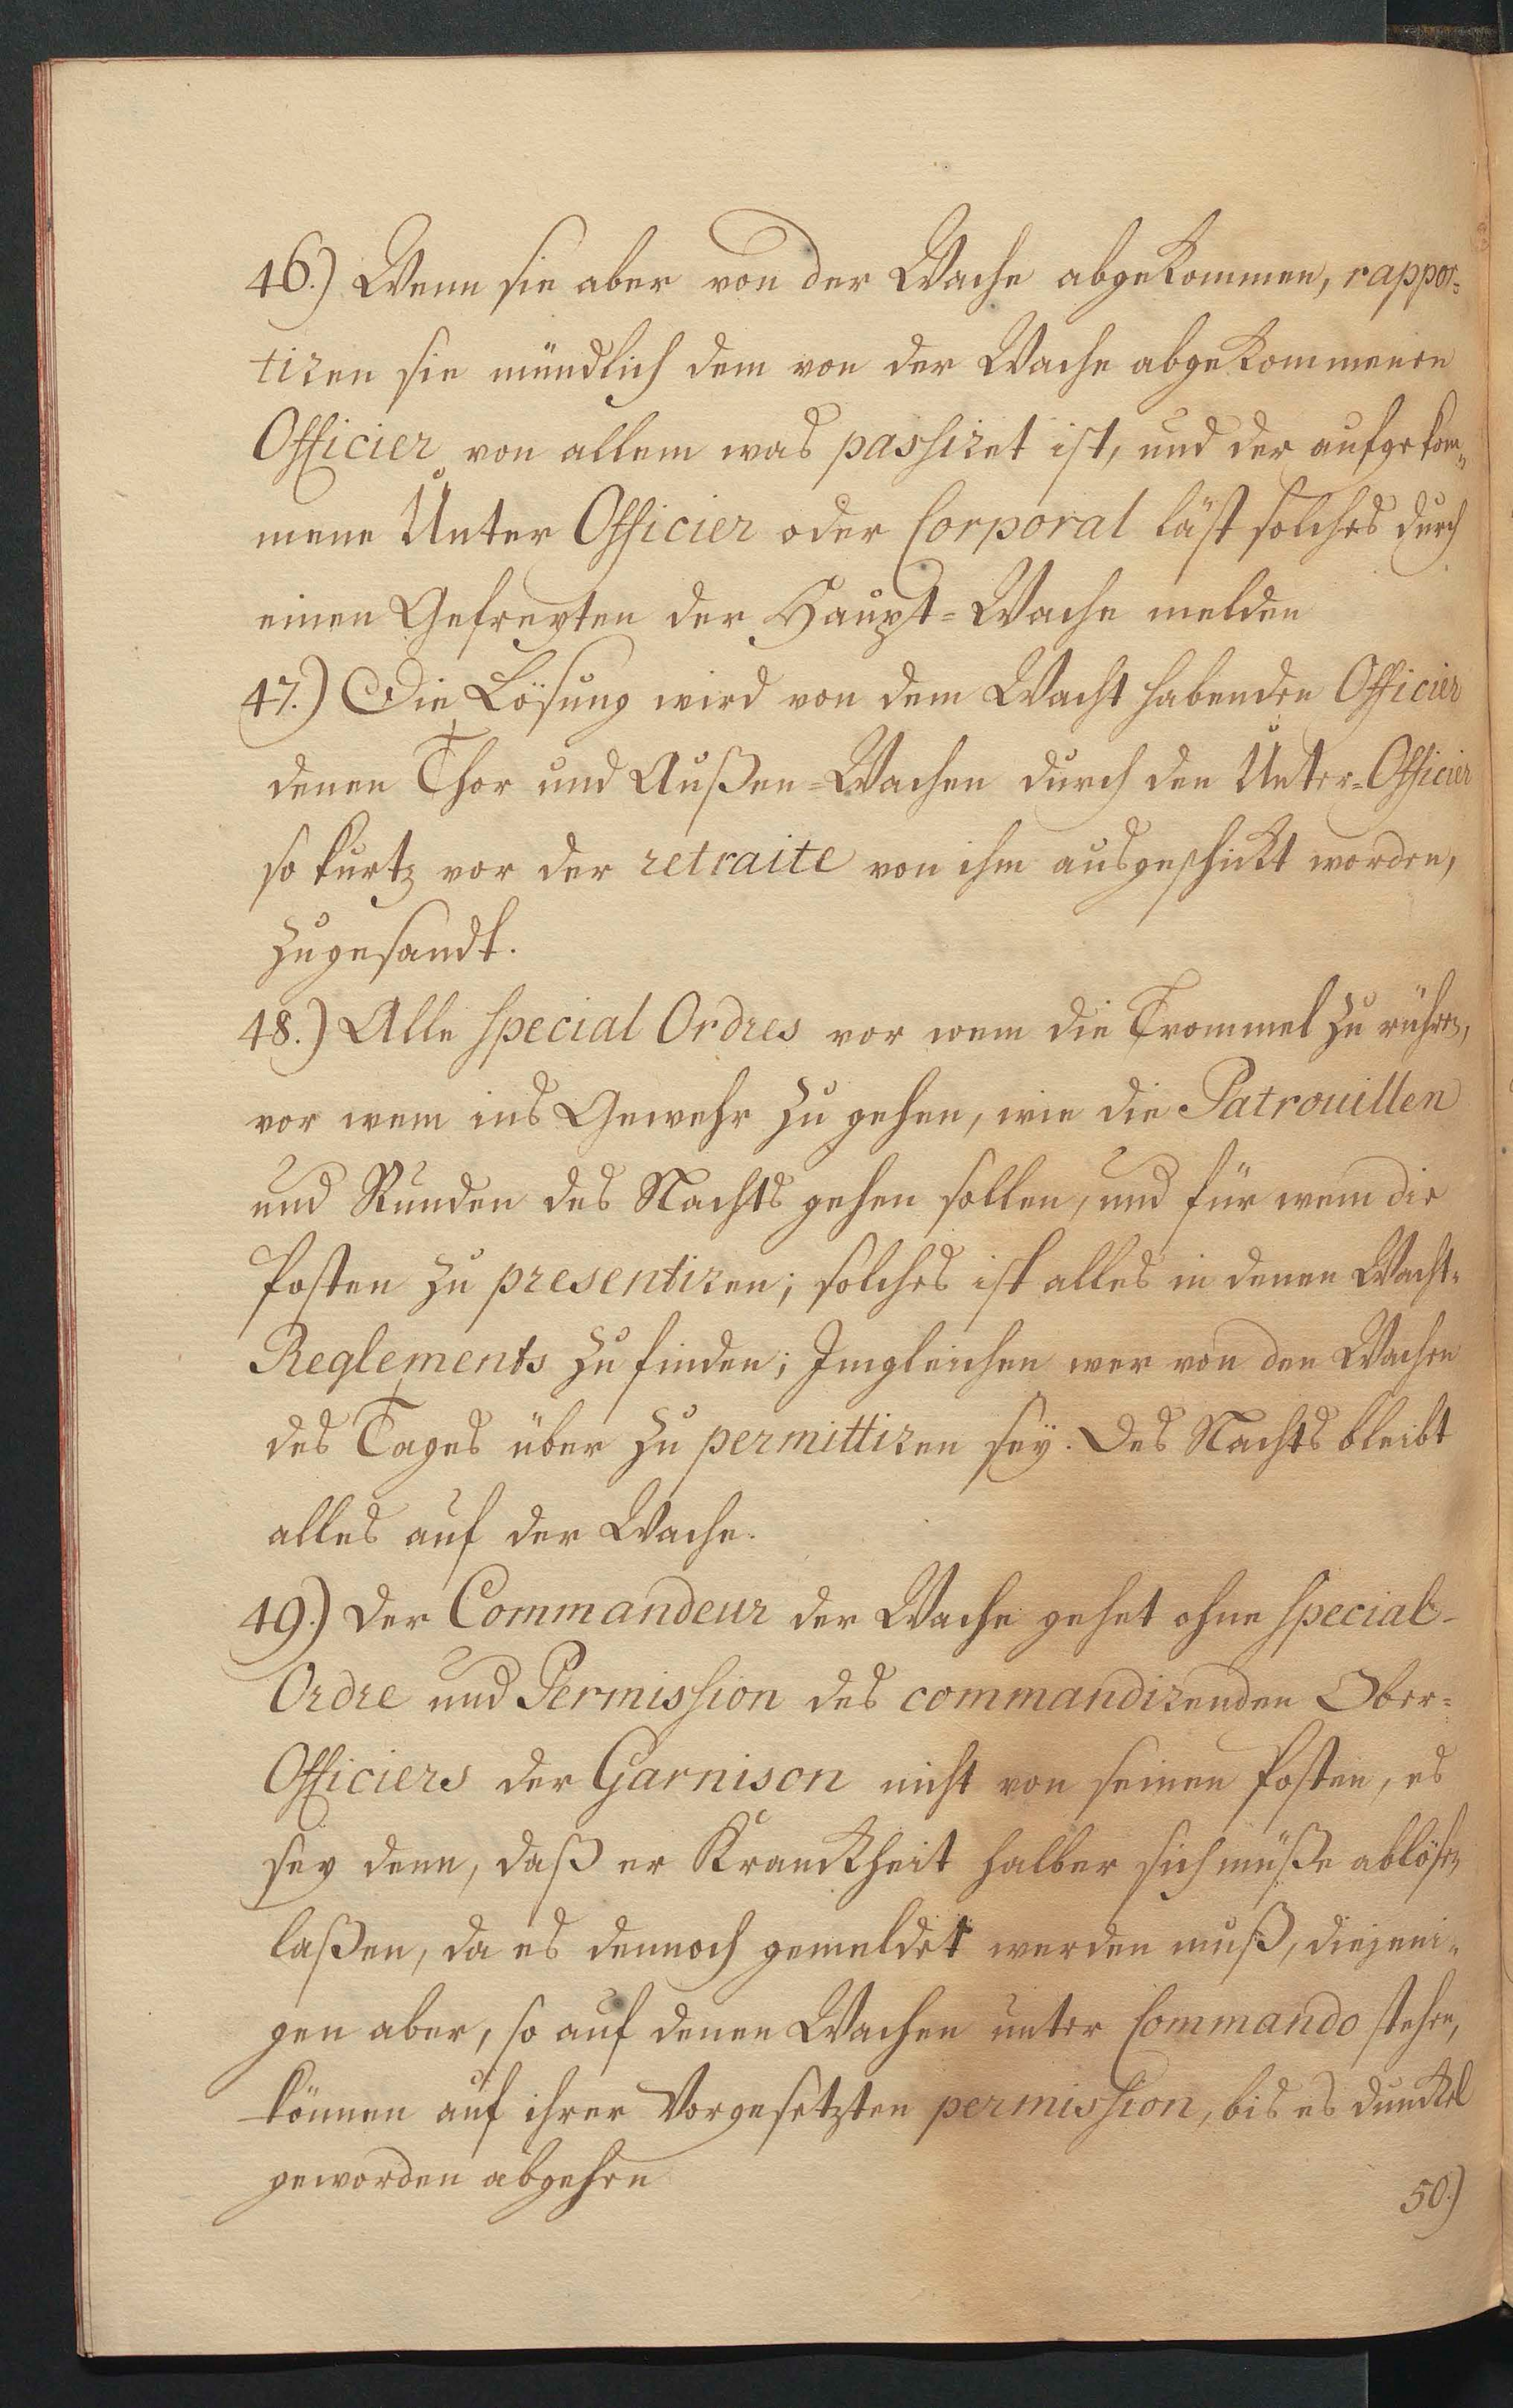 46.) Wenn sie aber von der Wache abgekommen, rappor-
tiren sie mündlich dem von der Wache abgekommenen
Officier von allem was passiret ist, und der aufgekom-
mene Unter Officier oder Corporal läst solches durch
einen Gefreyten der Haupt-Wache melden
47.) Die Lösung wird von dem Wacht habenden Officier
denen Thor und Außen-Wachen durch den Unter-Officier
so kurtz vor der retraite von ihm ausgeschickt worden,
zugesandt.
48.) Alle special Ordres vor wem die Trommel zu rühren,
vor wem ins Gewehr zu gehen, wie die Patrouillen
und Runden des Nachts gehen sollen, und für wem die
Posten zu presentiren; solches ist alles in denen Wacht-
Reglements zu finden; Imgleichen wer von den Wachen
des Tages über zu permittiren seÿ. Des Nachts bleibt
alles auf der Wache.
49.) Der Commandeur der Wache gehet ohne special-
Ordre und Permission des commandirenden Ober-
Officiers der Garnison nicht von seinen Posten, es
sey denn, daß er Kranckheit halber sich müße ablösen
laßen, da es dennoch gemeldet werden muß, diejeni-
gen aber, so auf denen Wachen unter Commando stehen,
können auf ihrer Vorgesetzten permission, bis es dunckel
geworden abgehen
50.)